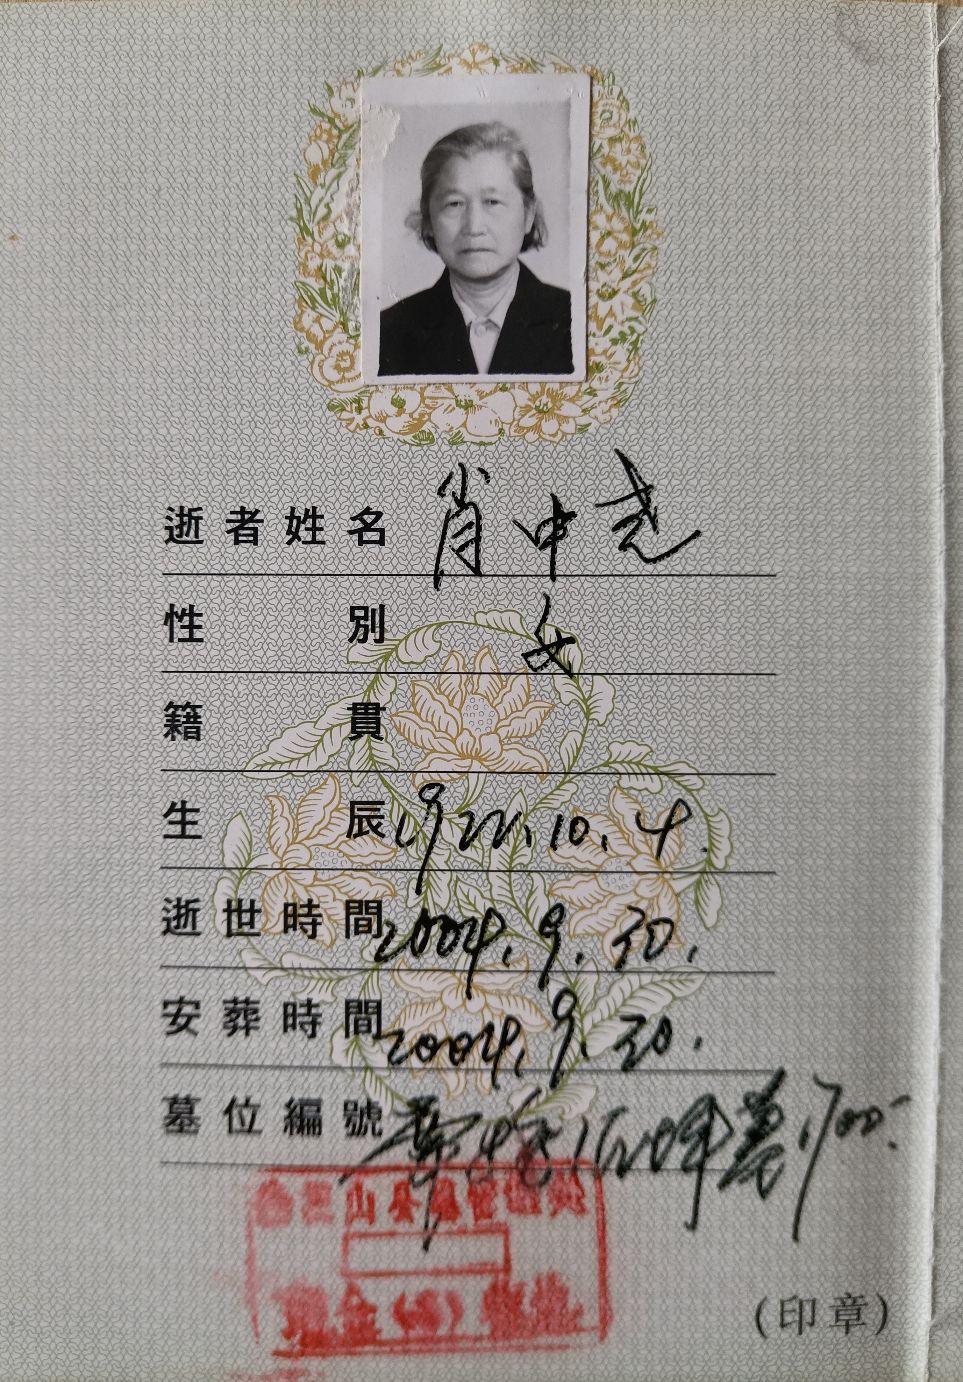 逝者姓名 肖中尧
性別 女
籍貫
生辰 1922.10.4.
逝世時間 2004.9.30.
安葬時間 2004.9.30.
墓位編號
山公墓管
现金
(印章)